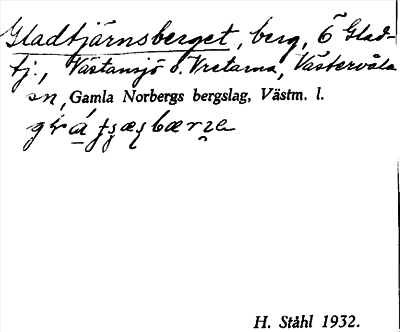 Gladtjärnsberget, berg, Ö Glad-
tj:, Västansjö o. Vretarna, Västervåla
sn, Gamla Norbergs bergslag, Västm. l.
H. Ståhl 1932.